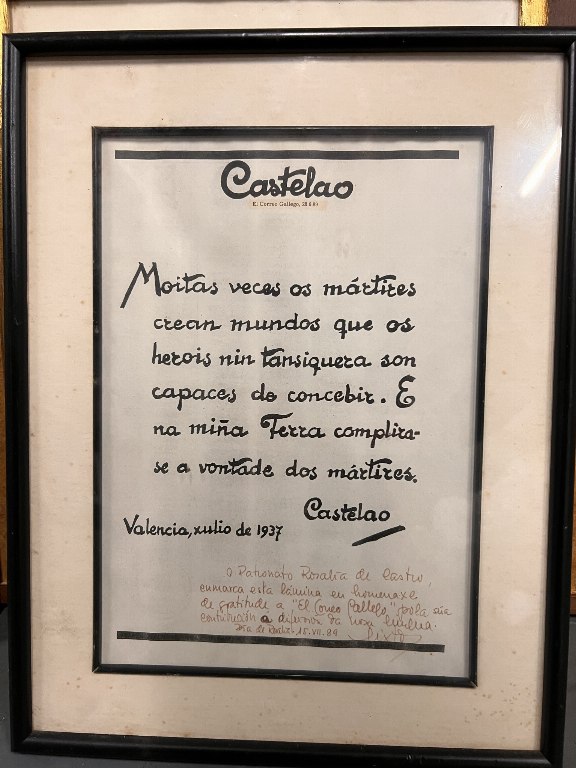 Castelao
El Correo Gallego, 28 6 89
Moitas veces os mártires
crean mundos que os
herois nin tansiquera son
capaces de concebir. E
na miña Terra complira-
se a vontade dos mártires.
Castelao
Valencia, xulio de 1937
O Patronato Rosalía de Castro,
enmarca esta lámina en homenaxe
de gratitude a "El Correo Gallego" pola súa
contribución a difusión da nosa
Día de 15.VII.89